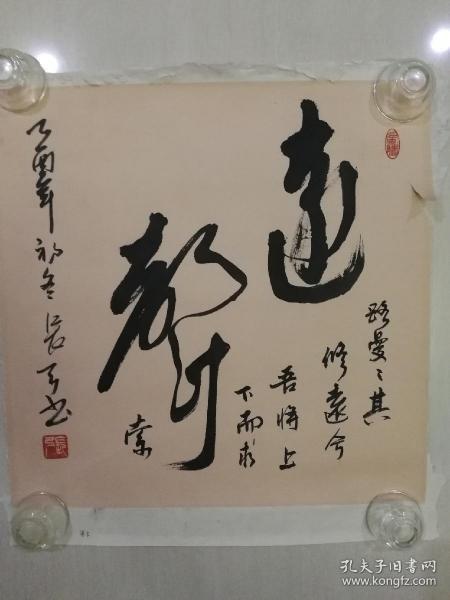 遠
聲
路曼々其
修遠兮
吾將上
下而求
索
乙酉年初冬
孔夫子旧书网
www.kongfz.com